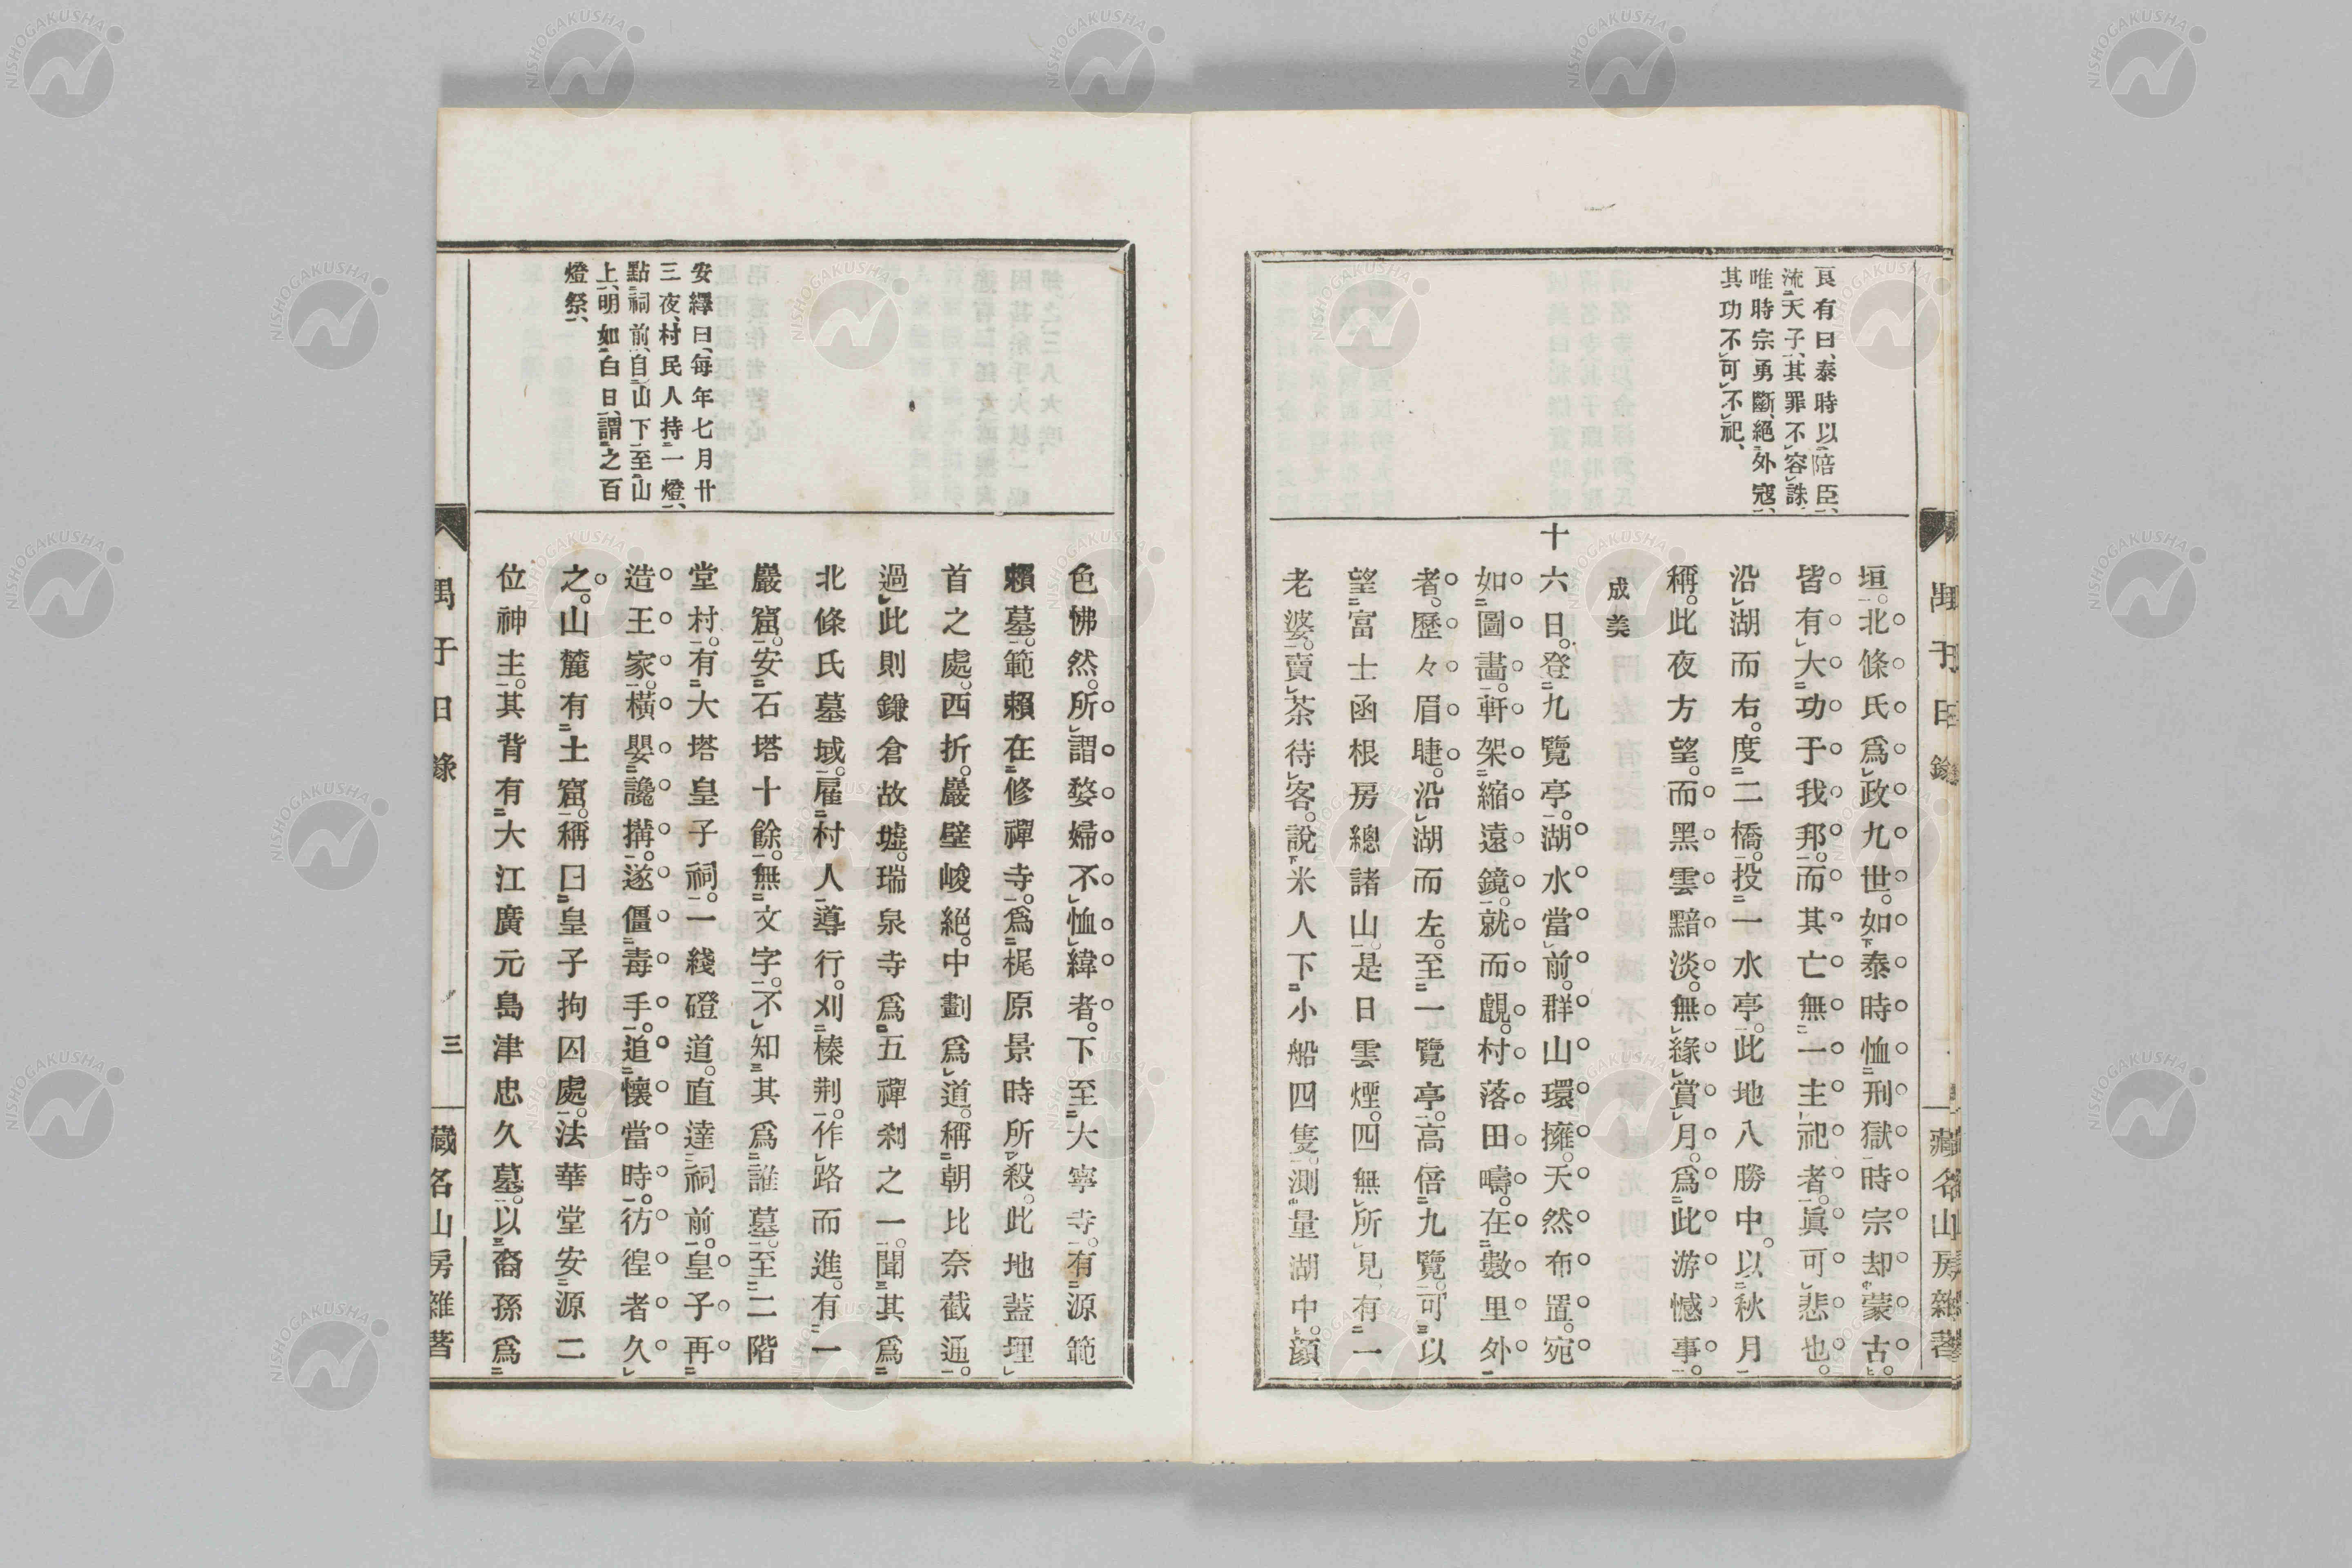 良有曰、泰時以陪臣、
流天子、其罪不容誅、
唯時宗勇斷、絕外寇、
其功不可不祀、
垣。北條氏爲政九世。如泰時恤刑獄時宗却蒙古。
皆有大功于我邦。而其亡無一主祀者。眞可悲也。
沿湖而右。度二橋。投一水亭。此地八勝中。以秋月
稱。此夜方望。而黑雲黯淡。無緣賞月。爲此游憾事。
成美
十六日。登九覽亭。湖水當前。群山環擁。天然布置。宛
如圖畵。軒架縮遠鏡。就而覰。村落田疇。在數里外
者。歷々眉睫。沿湖而左。至一覽亭。高倍九覽。可以
望富士函根房總諸山。是日雲煙。四無所見、有一
老婆。賣茶待客。說米人下小船四隻。測量湖中。顔
藏名山房雜著
安繹曰、每年七月廿
三夜、村民人持一燈、
點祠前、自山下至山
上、明如白日、謂之百
燈祭、
色怫然。所謂婺婦不恤緯者。下至大寧寺。有源範
賴墓。範賴在修禪寺。爲梶原景時所殺。此地蓋埋
首之處。西折。巖壁峻絕。中劃爲道。稱朝比奈截通。
過此則鎌倉故墟。瑞泉寺爲五禪刹之一。聞其爲
北條氏墓域。雇村人導行。刈榛荆。作路而進。有一
巖窟。安石塔十餘。無文字。不知其爲誰墓。至二階
堂村。有大塔皇子祠。一綫磴道。直達祠前。皇子再
造王家。橫嬰讒搆。遂僵毒手。追懷當時。彷徨者久
之。山麓有土窟。稱曰皇子拘囚處。法華堂安源二
位神主。其背有大江廣元島津忠久墓。以裔孫爲
禺于日錄
三
藏名山房雜著